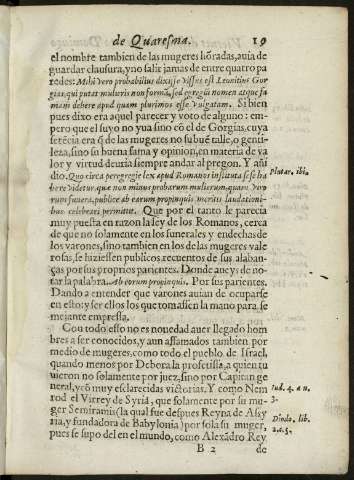 de Quaresma. 19
el nombre tambien de las mugeres hõradas, auia de
guardar clausura, y no salir jamas de entre quatro pa
redes: Mihi vero probabilius dixisse Visus est Leontius Gor
gias, qui putat mulieris non formã, sed egregiũ nomen atque fa
mam debere apud quam plurimos esse Vulgatam. Si bien
pues dixo era aquel parecer y voto de alguno: em-
pero que el suyo no yua sino cõ el de Gorgias, cuya
sẽtẽcia era q̃ de las mugeres no subuẽ talle, o genti-
leza, sino su buena fama y opinion, en materia de va
lor y virtud deuria siempre andar al pregon. Y aña
dio. Quo circa peregregie lex apud Romanos instituta se se ha
bere videtur, que non minus probarum mulierum, quam Viro
rum funera, publice ab earum propinquis meritis laudationi-
bus celebrari permittit. Que por el tanto le parecia
muy puesta en razon la ley de los Romanos, cerca
de que no solamente en los funerales y endechas de
los varones, sino tambien en los de las mugeres vale
rosas, se hiziessen publicos recuentos de sus alaban-
ças por sus propios parientes. Donde aueys de no-
tar la palabra. Ab eorum propinquis. Por sus parientes.
Dando a entender que varones auian de ocuparse
en esto; y ser ellos los que tomassen la mano para se
mejante empressa.
Con todo esso no es nouedad auer llegado hom
bres a ser conocidos, y aun affamados tambien por
medio de mugeres, como todo el pueblo de Israel,
quando menos por Debora la profetissa, a quien tu
uieron no solamente por juez, sino por Capitan ge
neral, y cõ muy esclarecidas victorias. Y como Nem
rod el Virrey de Syria, que solamente por su mu-
ger Semiramis (la qual fue despues Reyna de Assy
ria, y fundadora de Babylonia) por sola su muger,
pues se supo del en el mundo, como Alexãdro Rey
B 2 de
Plutar. ibi.
Iud. 4. a n.
3.
Diodo. lib.
2. c. 5.